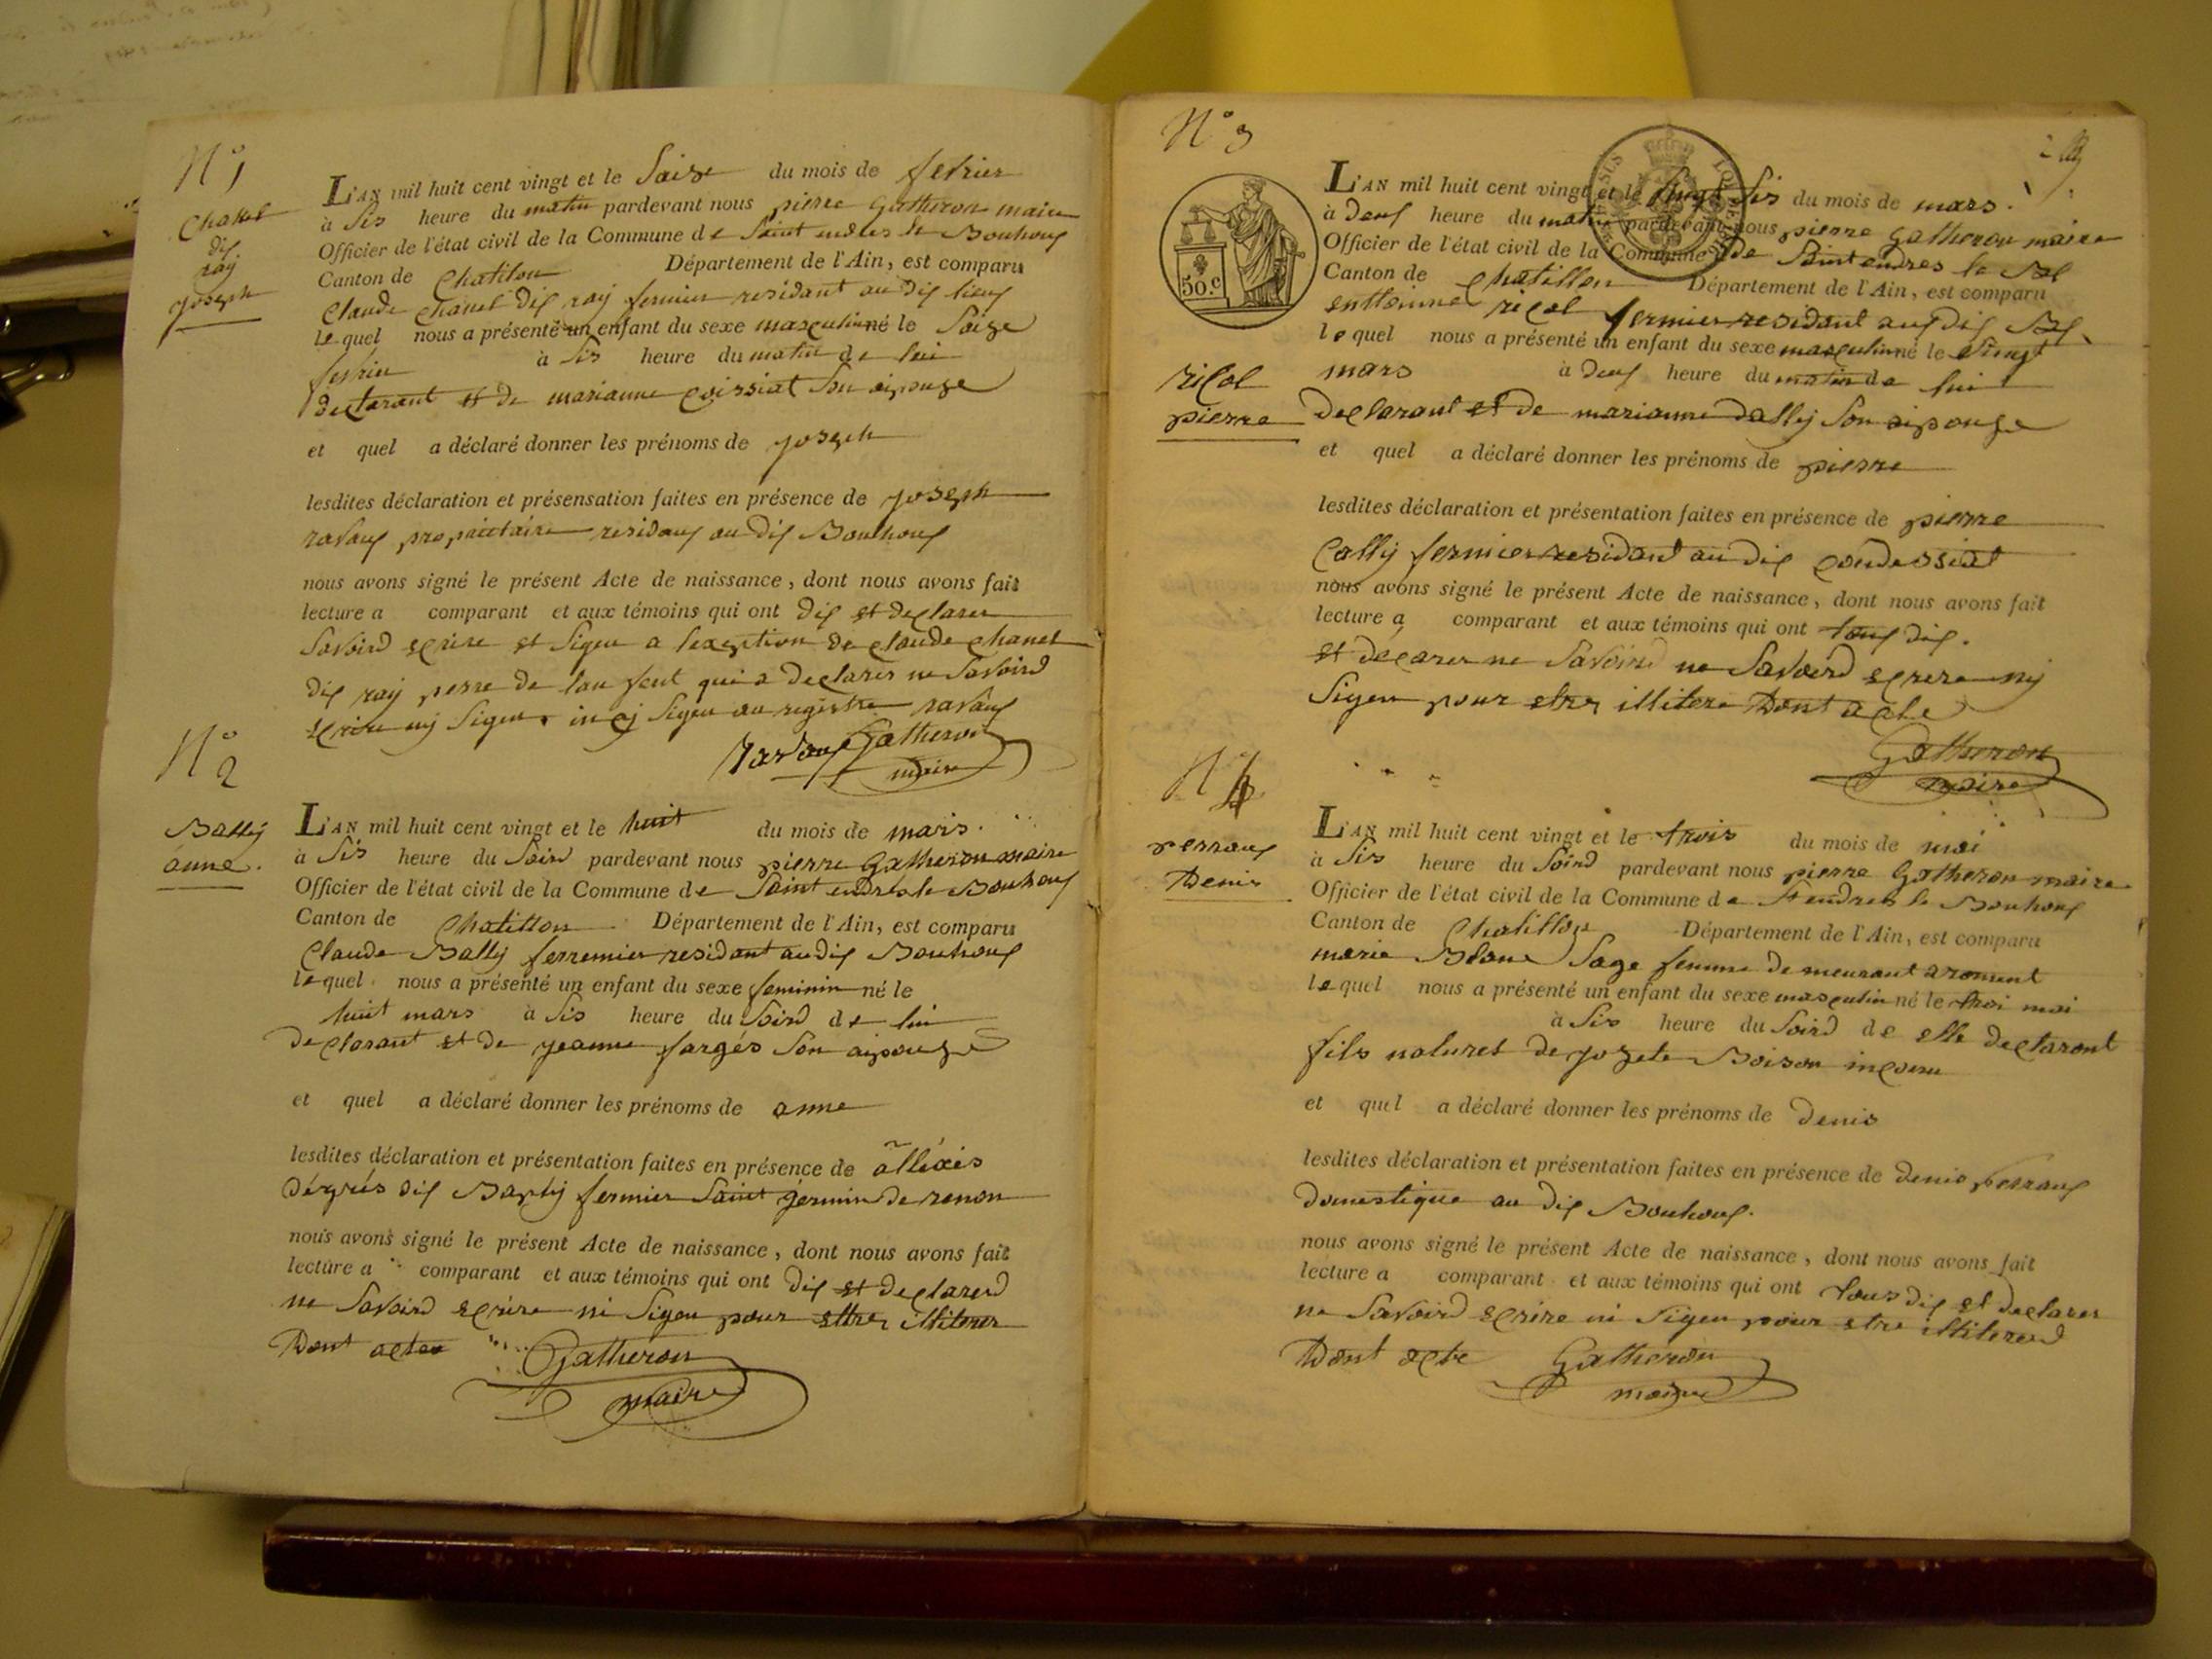 N° 1
Chanel
dif
raÿ
joseph
L'AN mil huit cent vingt et le Saise du mois de fevrier
à Sis heure du matin pardevant nous pierre gatheron maire
Officier de l'état civil de la Commune de Saint endres le Bouhouf
Canton de Chatilon Département de l'Ain, est comparu
Claude chanel dif raÿ fermier residant au dif lieuf
lequel nous a présenté un enfant du sexe masculin né le Saize
fevrier à Sis heure du matin de lui
declarant et de marianne coissiat Son aipouze
et quel a déclaré donner les prénoms de joseph
lesdites déclaration et présensation faites en présence de joseph
ravauf propiaitaire residauf au dif Bouhouf
nous avons signé le présent Acte de naissance, dont nous avons fait
lecture a comparant et aux témoins qui ont dif et declarer
Savoird ecrire et Signer a lexeption de claude chanel
dif raÿ perre de lan fent qui a declarer ne Savoird
ecrire nÿ Signer. Signer au registre ravauf
ravauf Gatheron
maire
N° 2
Ballÿ
anne.
L'AN mil huit cent vingt et le huit du mois de mars.
à Sis heure du Soird pardevant nous pierre Gatheron maire
Officier de l'état civil de la Commune de Saint endres le Bouhouf
Canton de Chatillon Département de l'Ain, est comparu
Claude Ballÿ ferremier residant au dif Bouhouf
lequel nous a présenté un enfant du sexe feminin né le
huit mars à Sis heure du Soird de lui
declarant et de jeanne fargés Son aipouze
et quel a déclaré donner les prénoms de anne
lesdites déclaration et présentation faites en présence de alléxis
dégrés dif Baptÿ fermier Saint germin de renon
nous avons signé le présent Acte de naissance, dont nous avons fait
lecture a comparant et aux témoins qui ont dif et declarerd
ne Savoird ecrire ni Signer pour ettre illiterer
Dont acte Gatheron
maire
N° 3
50.c
ricol
pierre
L'AN mil huit cent vingt et le vingt Sis du mois de mars.
à deuf heure du matin pardevant nous pierre gatheron maire
Officier de l'état civil de la Commune de Saint endres le
Canton de Chatillon Département de l'Ain, est comparu
enttoinne ricol fermier residant auf dif
lequel nous a présenté un enfant du sexe masculin né le Vingt
mars à deuf heure du matin de lui
declarant et de marianne dallÿ Son aipouze
et quel a déclaré donner les prénoms de pierre
lesdites déclaration et présentation faites en présence de pierre
Callÿ fermier residant au dif condessiat
nous avons signé le présent Acte de naissance, dont nous avons fait
lecture a comparant et aux témoins qui ont touf dif.
et décarer ne Savoird ne Savoird ecrere nÿ
Signer pour etre illitere Dont acte
Gatheron
maire
N° 4
perrauf
Denis
L'AN mil huit cent vingt et le trois du mois de mai
à Sis heure du Soird pardevant nous pierre Gatheron maire
Officier de l'état civil de la Commune de St endres le Bouhouf
Canton de Chatillon Département de l'Ain, est comparu
marie Blanc Sage femme demeurant a romant
lequel nous a présenté un enfant du sexe masculin né le troi mai
à Sis heure du Soird de elle declarant
fils naturel de jozete Boison inconu
et quel a déclaré donner les prénoms de Denis
lesdites déclaration et présentation faites en présence de denis perrauf
domestique au dif Bouhouf.
nous avons signé le présent Acte de naissance, dont nous avons fait
lecture a comparant et aux témoins qui ont tous dif et declarer
ne Savoird ecrire ni Signer pour etre illitererd
Dont acte Gatheron
maire